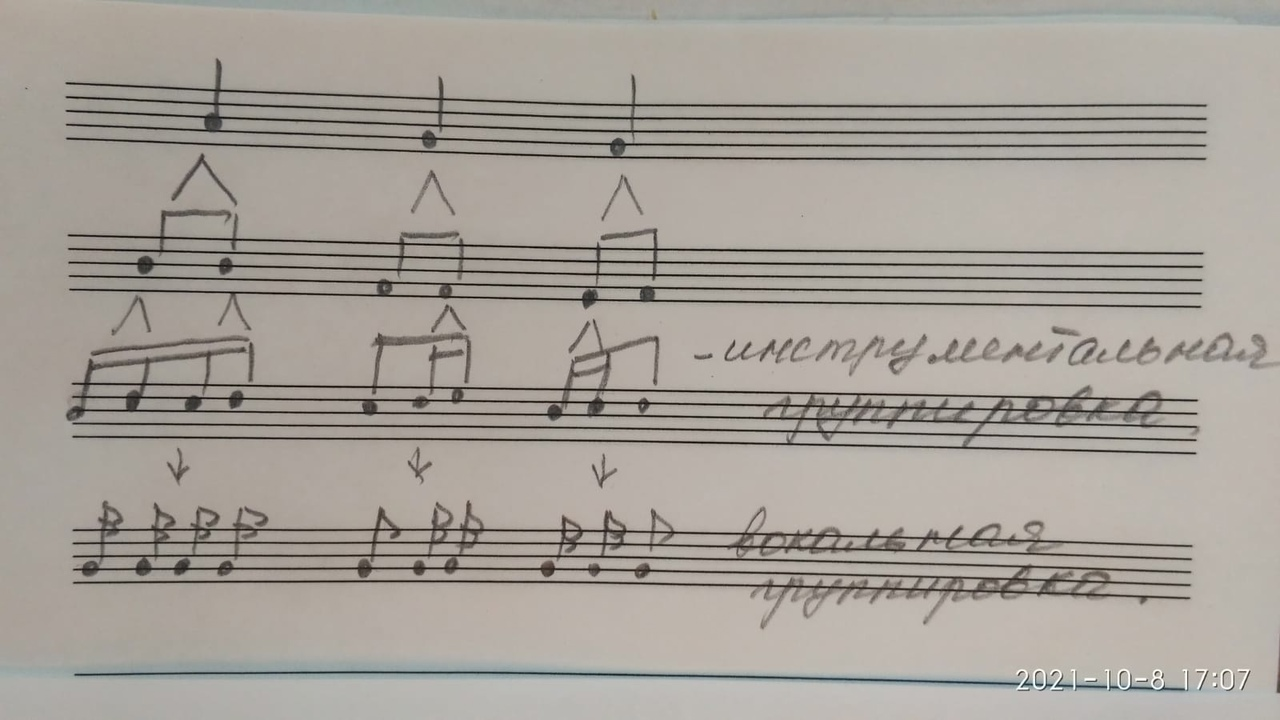 - инструментальная
группировка
вокальная
группировка.
2021-10-8 17:07